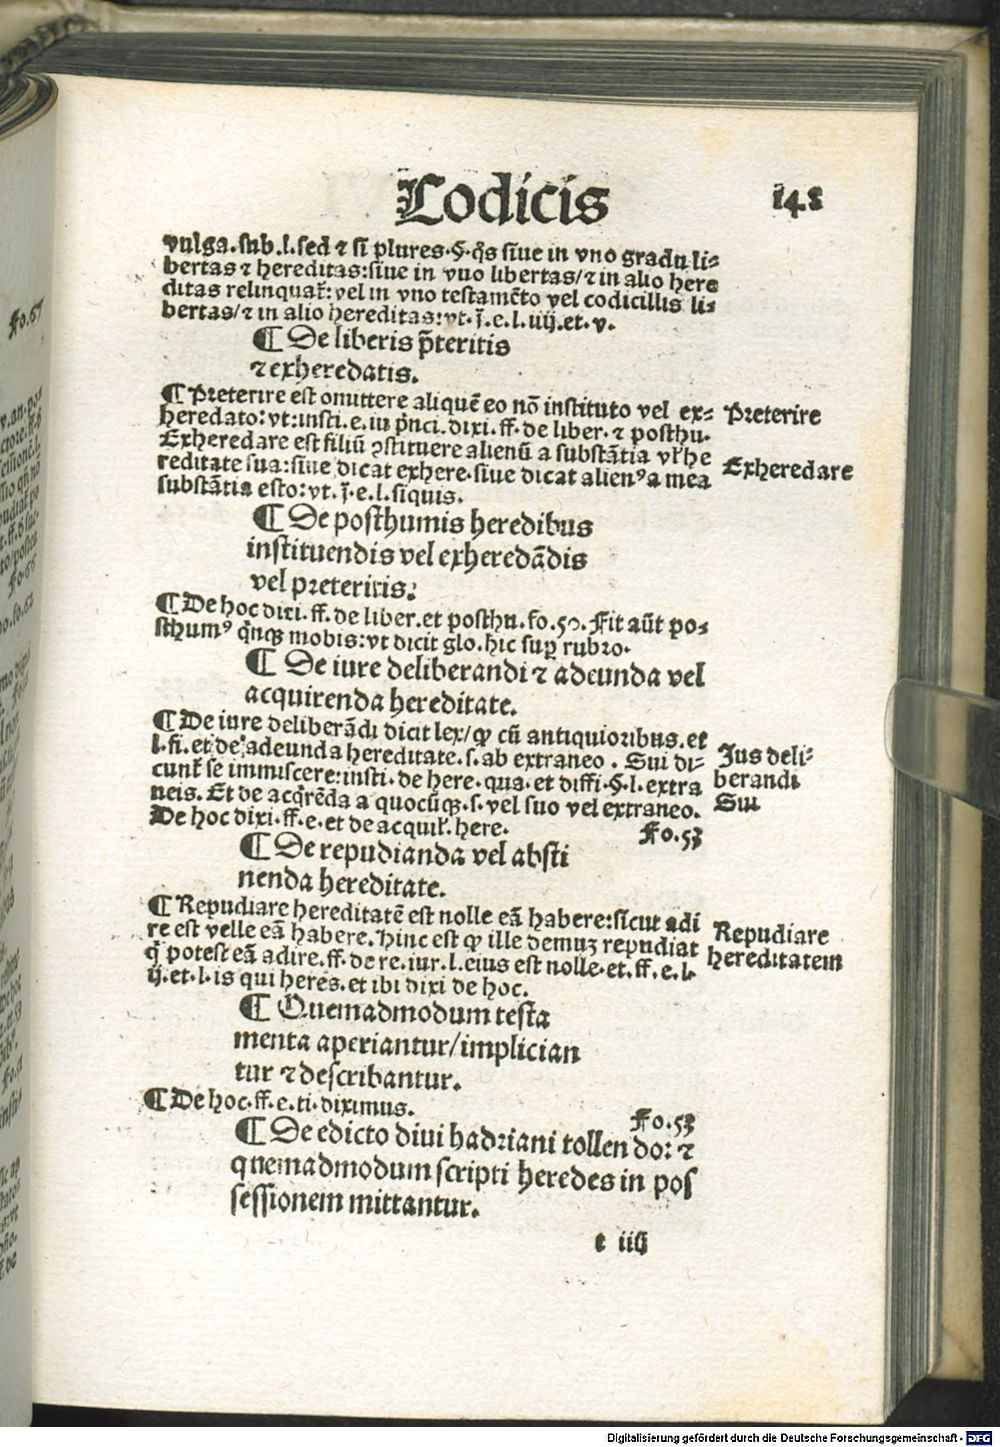 Codicis 148
vulga. sub. l. sed ⁊ si plures. §. q̄s siue in vno gradu li⸗
bertas ⁊ hereditas: siue in vno libertas/ ⁊ in alio here
ditas relinquat᷑: vel in vno testamēto vel codicillis li⸗
bertas/ ⁊ in alio hereditas: vt. j̄. e. l. iiij. et. v.
¶ De liberis p̄teritis
⁊ exheredatis.
¶ Preterire est omittere aliquē eo nō instituto vel ex⸗
heredato: vt: insti. e. in p̄nci. dixi. ff. de liber. ⁊ posthu.
Exheredare est filiū ꝯstituere alienū a substātia vl᷑ he
reditate sua: siue dicat exhere. siue dicat alienꝰ a mea
substātia esto: vt. j̄. e. l. siquis.
Preterire
Exheredare
¶ De posthumis heredibus
instituendis vel exheredādis
vel preteritis.
¶ De hoc dixi. ff. de liber. et posthu. fo. 50. Fit aūt po⸗
sthumꝰ q̄nqꝫ mobis: vt dicit glo. hic sup̄ rubro.
¶ De iure deliberandi ⁊ adeunda vel
acquirenda hereditate.
¶ De iure deliberādi dicit lex/ ꝙ cū antiquioribus. et
l. fi. et de adeunda hereditate. s. ab extraneo. Sui di⸗
cunt᷑ se immiscere: insti. de here. qua. et diffi. §. l. extra
neis. Et de acq̄rēda a quocūqꝫ. s. vel suo vel extraneo.
De hoc dixi. ff. e. et de acquir᷑. here. Fo. 53
Jus deli⸗
berandi
Sui
¶ De repudianda vel absti
nenda hereditate.
¶ Repudiare hereditatē est nolle eā habere: sicut adi
re est velle eā habere. Hinc est ꝙ ille demuꝫ repudiat
q̄ potest eā adire. ff. de re. iur. l. eius est nolle. et. ff. e. l.
ij. et. l. is qui heres. et ibi dixi de hoc.
Repudiare
hereditatem
¶ Quemadmodum testa
menta aperiantur/ implician
tur ⁊ describantur.
¶ De hoc. ff. e. ti. diximus. Fo. 53
¶ De edicto diui hadriani tollendo: ⁊
quemadmodum scripti heredes in pos
sessionem mittantur.
e iiij
Fo. 67
Digitalisierung gefördert durch die Deutsche Forschungsgemeinschaft - DFG